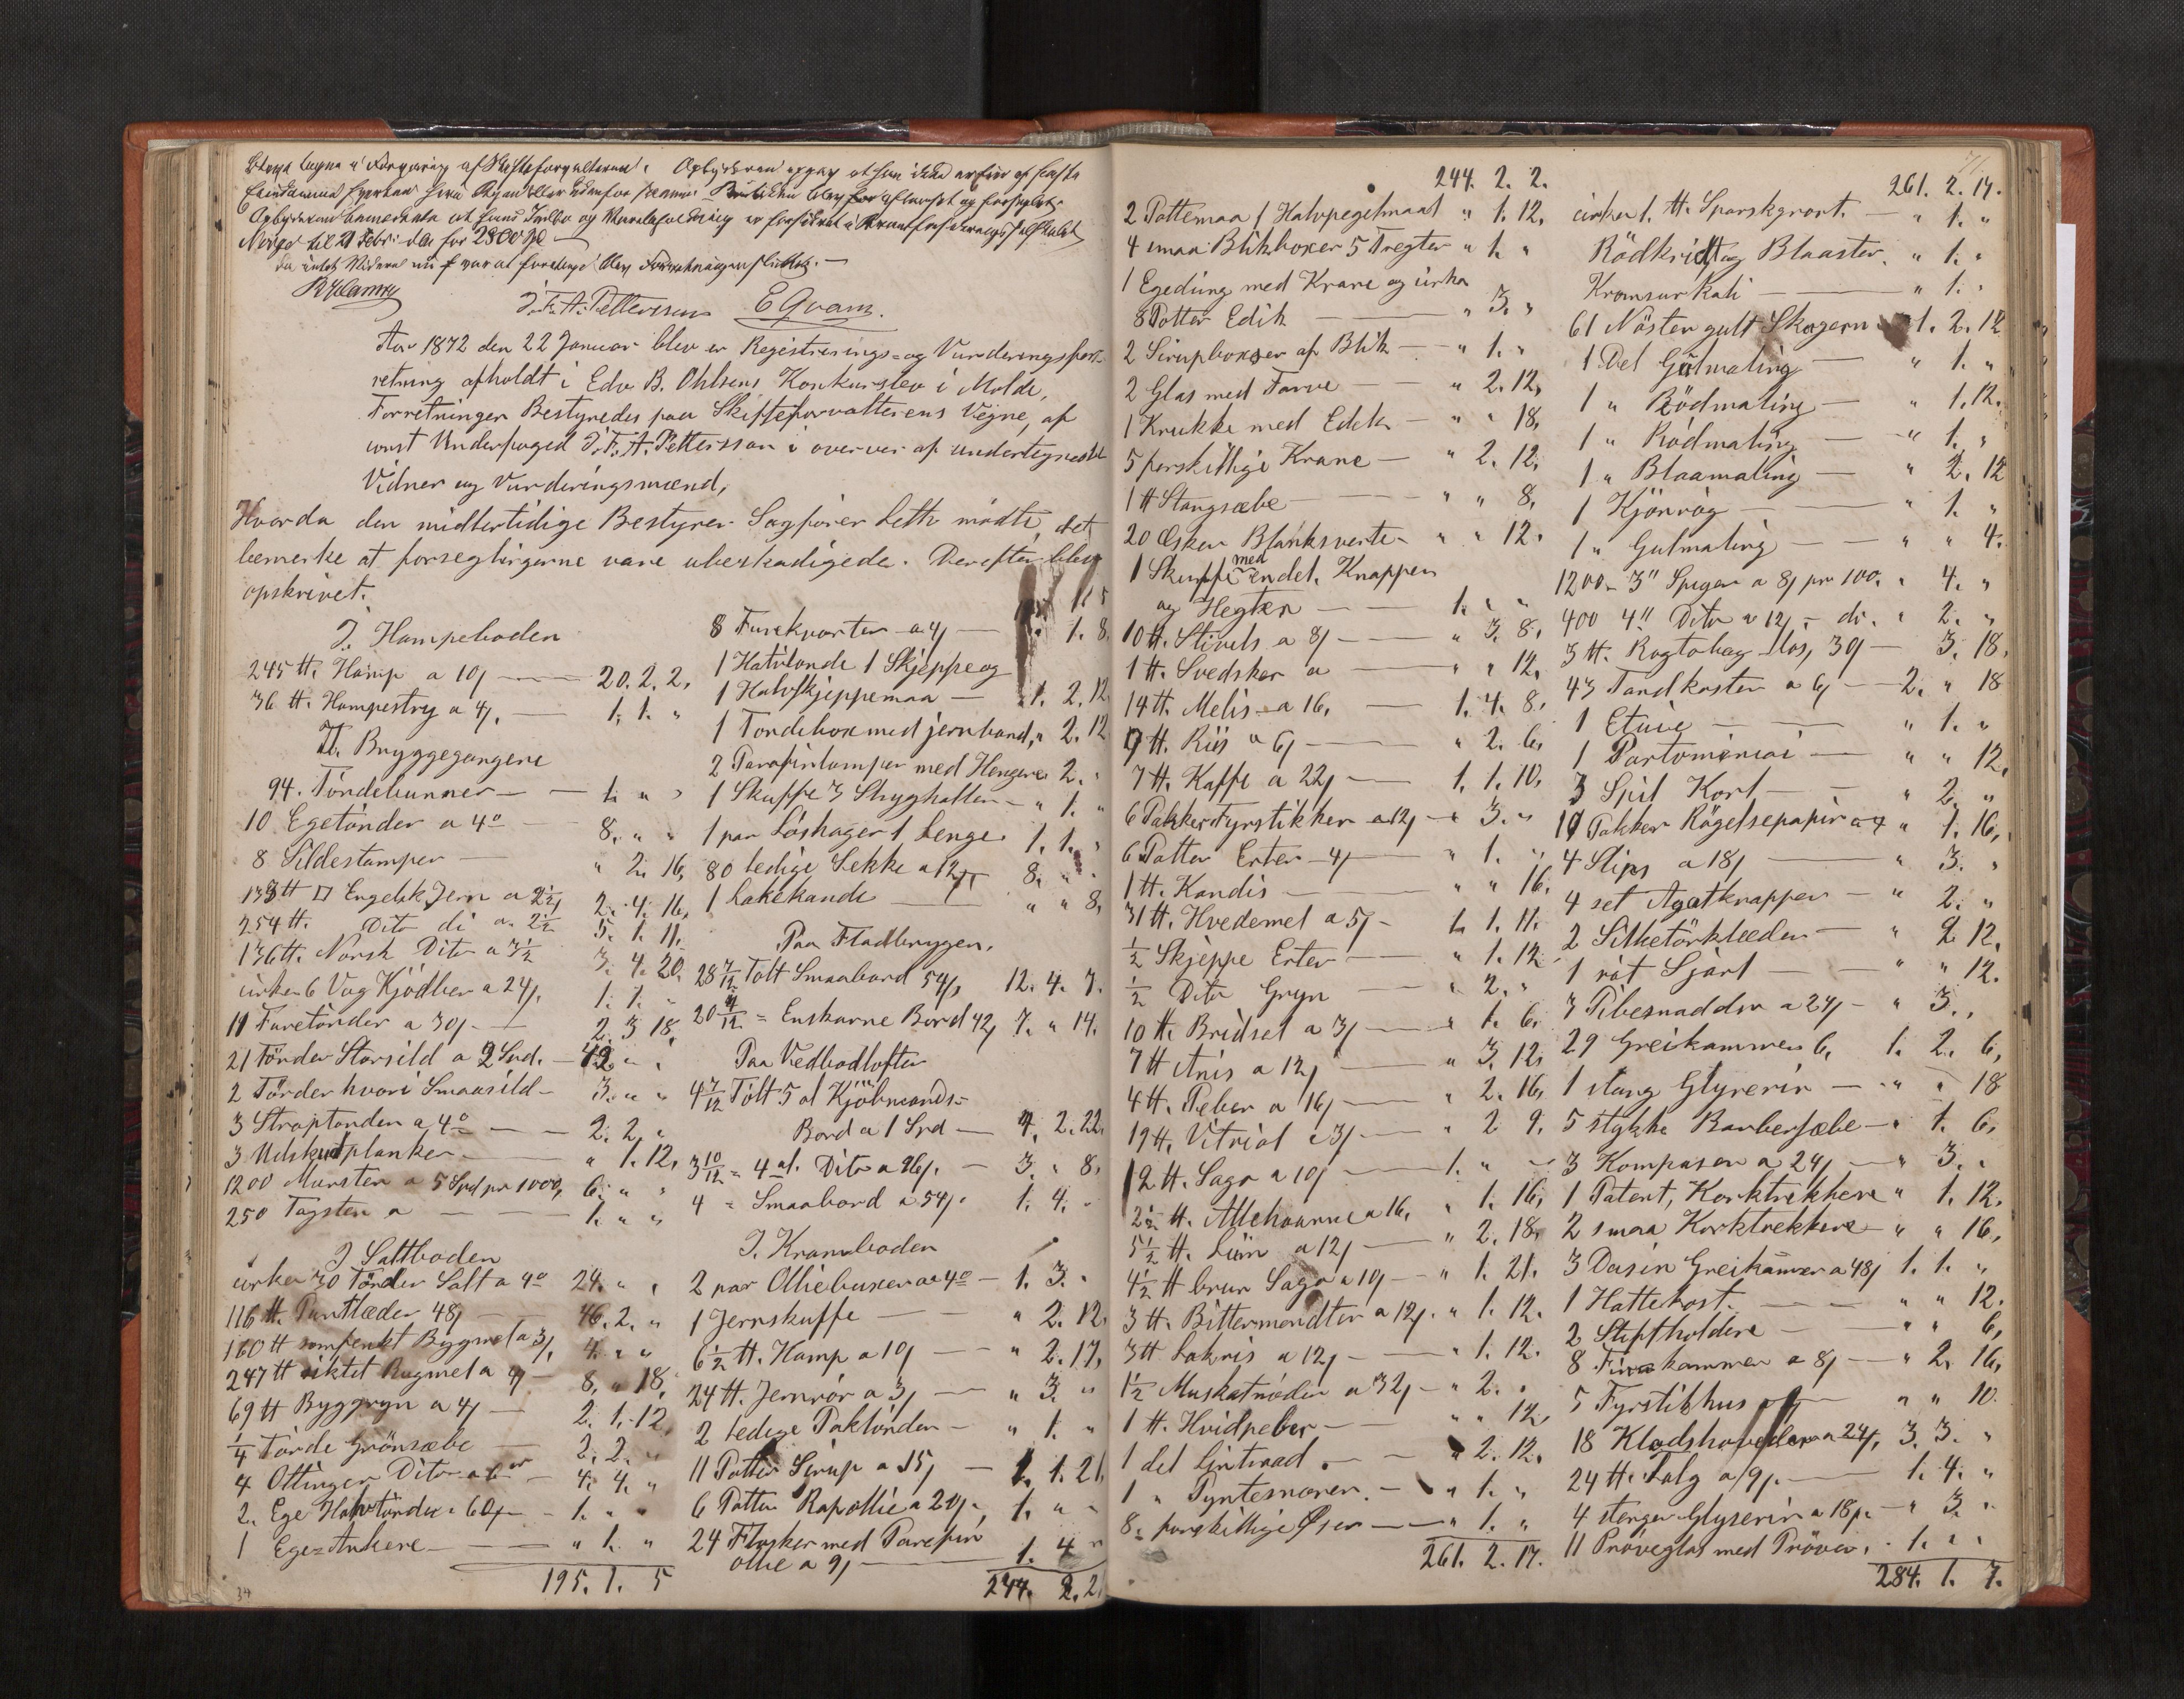 Opbyderen opgav at han ikke
Opbyderen bemerkede at hans Indbo og er forsikret i
Norge til 21 Febr: for 2800
E Qvam.
J. F. A. Pettersson
Aar 1872 den 22 Januar blev en Registrerings- og Vurderingsfor-
retning afholdt i Edv. B. Ohlsens Konkursbo i Molde,
Forretningen Bestyredes paa Skifteforvalterens Vegne, af
const Underfoged J. F. A. Pettersson i overver af undertegnede
Vidner og Vurderingsmænd,
Hvorda den midlertidige Bestyrer Sagfører Leth mødte, det
bemerke at forseglingerne vare ubeskadigede. Derefter blev
opskrevet.
I. Hampeboden
245 ℔. Hamp a 10ß — 20. 2. 2.
36 ℔. Hampestry a 4ß. — 1. 1. "
II. Bryggegangene
94. Töndebunner — 1. " "
10 Egetönder a 4º — 8. " "
8 Sildestamper — " 2. 16,
133 ℔ Engelsk Jern a 2½ 2. 4. 16,
254 ℔. Dito di a. 2½ 5. 1. 11.
136 ℔. Norsk Dito a 3½ 3. 4. 20.
cirka 6 Vog Kjödben a 24ß. 1. 1. "
11 Furetönder a 30ß — 2. 3 18,
21 Tönder Storsild a 2 Spd. — 42. " "
2 Tönder hvori Smaasild — 3. " "
3 Straptönder a 4º — 2. 2. "
3 Udskudplanker — " 1. 12,
1200 Mursten a 5 Spd pr 1000, 6. " "
250 Tagsten a — 1. " "
I Saltboden
cirka 30 Tönder Salt a 4º 24. " "
116 ℔. Puntlæder 48ß — 46. 2. "
160 ℔ sampenkt Bygmel a 3ß, 4. " "
247 ℔ siktet Rugmel a 4ß — 8. " 18,
69 ℔ Byggryn a 4ß — 2. 1. 12
¼ Tönde Grönsæbe — 2. 2. "
4 Ottinger Dito a 6 — 4. 4. "
2. Ege Halvtönder a 60ß — 1. " "
1 Ege-Ankere — " 1. "
195. 1. 5
34
8 Furekvarter a 4ß — 1. 8.
1 Halvtönde 1 Skjeppe og
1 Halvskjeppemaa — 1. 2. 12
1 Tondebox med jernband, " 2. 12
2 Parafinlamper med Hengere 2. "
1 Skuffe 3 Stryghatter — " 1. "
1 par Löshager 1 Lenge 1. 1. "
80 ledige Sekke a 12ß 8. " "
1 Lakekande — " " 8,
Paa Fladbryggen.
28 7/12 Tolt Smaabord 54ß, 12. 4. 7.
20 4/12 = Enskarne Bord 42ß 7. " 14.
Paa Vedbodloftet
4 7/12 Tolt 5 al Kjöbmands-
Bord a 1 Spd — 4. 2. 22.
3 10/12 = 4 al. Dito a 96ß. — 3. " 8,
4 = Smaabord a 54ß. 1. 4. "
I. Kramboden
2 par Olliebuxer a 4º — 1. 3. "
1 Jernskuffe — " 2. 12.
6½ ℔. Hamp a 10ß — " 2. 17,
24 ℔. Jernrör a 3ß — " 3. "
2 ledige Paktönder — " 1. "
11 Potter Sirup a 15ß — 1. 1. 21,
6 Potter Rapollie a 20ß, 1. " "
24 Flasker med Parafin
ollie a 9ß — 1. 4 "
244. 2. 2.
244. 2. 2.
2 Pottemaa 1 Halvpegelmaal " 1. 12,
4 smaa Blikboxer 5 Tregter " 1. "
1 Egeding med Krane og cirka
8 Potter Edik — " 3. "
2 Sirupboxser af Blik — " 1. "
2 Glas med Farve — " 2. 12,
1 Krukke med Edik — " " 18,
5 forskillige Krane — " 2. 12,
1 ℔ Stangsæbe — " " 8,
20 Æsker Blanksverte — " " 12.
1 Skuffe med endel Knapper
og Hegter — 1. " "
10 ℔. Stivels a 8ß — " 3. 8.
1 ℔. Svedsker a — " " 12.
14 ℔. Melis a 16. — 1. 4. 8.
9 ℔. Riis a 6ß — " 2. 6.
7 ℔. Kaffe a 22ß — 1. 1. 10,
6 Pakker Fyrstikker a 12ß — " 3. "
6 Potter Erter 4ß — " 1. "
1 ℔. Kandis — " " 16.
31 ℔. Hvedemel a 5ß — 1. 1. 11.
½ Skjeppe Erter — " 1. 12
½ Dito Gryn — " 2. "
10 ℔. Bridsal a 3ß — " 1. 6.
7 ℔ Anis a 12ß — " 3. 12,
4 ℔. Peber a 16ß — " 2. 16,
19 ℔. Vitriol a 3ß — " 2 9.
12 ℔. Sago a 10ß — 1. " "
2½ ℔. Allehaanne a 16. " 1. 16,
5½ ℔. Liim a 12ß — " 2. 18,
4½ ℔ brun Sago a 10ß — " 1. 21.
3 ℔. Bittermandler a 12ß. " 1. 12.
3 ℔ Lakris a 12ß — " 1. 12.
1½ Muskatnöder a 32ß — " 2. "
1 ℔. Hvidpeber — " " 12,
1 del Lintraad. — " 2. 12.
1 " Pyntesnorer. — " 1. "
8. forskillige Öser — " 1. "
261. 2. 17.
261. 2. 17.
cirka 1. ℔. Spanskgrönt. — " 1. "
Rödkridt og Blaasten. " 1. "
Kromsur Kali — " 1. "
61 Nöster gult Skogarn 1. 2. 12
1 Del Gulmaling — " 1. "
1 " Rödmaling — " 1. 12.
1 " Rödmaling — " 1. "
1 " Blaamaling — " 2. 12
1 Kjönrög — " 1. "
1 " Gulmaling — " " 4.
1200 3" Spiger a 8ß pr 100. " 4. "
400 4" Dito a 12ß — di. " 2. "
3 ℔. Rogtobag 39ß — 3. 18.
43 Tandkoster a 6ß — 2. " 18
1 Etuie — " 1. "
1 Partomoniai — " " 12,
3 Spil Kort — " 2. "
10 Pakker Rögelsepapir a 4 " 1. 16,
4 Slips a 18ß — " 3. "
4 set Agatknapper — " 2. "
2 Silketörklæder — " 2 12.
1 röt Sjarl — " " 12.
3 Pibesnadder a 24ß — " 3. "
29 Greikammer 6. 1. 2. 6,
1 stang Glyserin — " " 18
5 stykke Barbersæbe — " 1. 6,
3 Kompaser a 24ß — " 3. "
1 Patent, Korktrekkere " 1. 12.
2 smaa Korktrekkere — " " 16,
3 Dusin Greikammer a 48ß 1. 1. "
1 Hattekost. — " " 12.
2 Stiftholdere — " " 6,
8 Finekammer a 8ß — " 2. 16,
5 Fyrstikhus — " " 10.
18 Kladshoveder a 24ß, 3. 3. "
24 ℔. Talg a 9ß. — 1. 4. "
4 stenger Glyserin a 18ß. — " 3. "
11 Pröveglas med Pröver, . 1. " "
284. 1. 7.